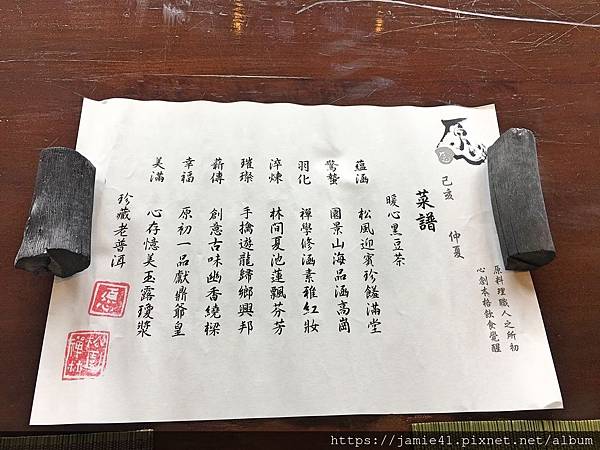 原心
己亥 仲夏
原料理職人之所初
心創本格飲食覺醒
菜譜
暖心黑豆茶
蘊涵 松風迎賓珍饈滿堂
驚蟄 園景山海品涵高崗
羽化 禪學修涵素雅紅妝
淬煉 林間夏池蓮飄芬芳
璀璨 手擒遊龍歸鄉興邦
薪傳 創意古味幽香繞樑
幸福 原初一品獻鼎爺皇
美滿 心存憶美玉露瓊漿
珍藏老普洱
松園
禪林
https://jamie41.pixnet.net/album